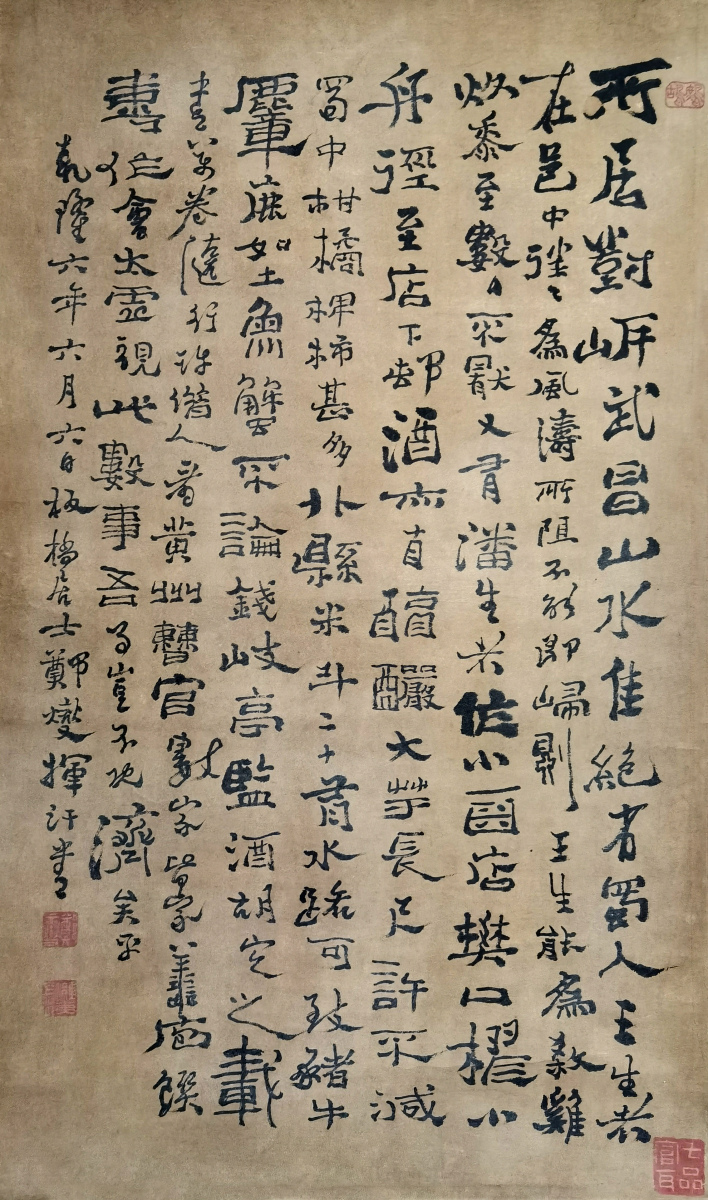 所居對岸武昌山水佳絕有蜀人王生者
在邑中往〻為風濤所阻不能即歸則王生能為殺雞
炊黍至數日不厭又有潘生者作小店樊口櫂小
舟徑至店下邨酒亦自醇釅大芋長尺許不減
蜀中柑橘椑柿甚多外縣米斗二十有水路可致豬牛
麞鹿如土魚蟹不論錢岐亭監酒胡定之載
書萬卷隨行許借人看黃州曹官數家皆家善庖饌
喜作會太虛視此數事吾豈不既濟矣乎
乾隆六年六月六日板橋居士鄭燮揮汗書
七品官耳